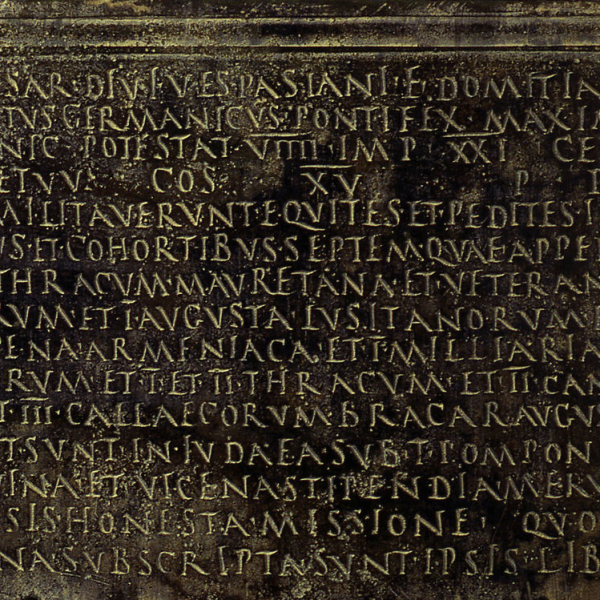 SAR·DIVI·VESPASIANI·F·DOMITIA
TVS GERMANICVS·PONTIFEX·MAXIM
NIC POTESTAT·VIIII·IMP·XXI CE
ETVV· COS XV P
MILITAVERVNT·EQVITES·ET·PEDITES·I
VS·ET·COHORTIBVS·SEPTEM·QVAE APPEL
THRACVM·MAVRETANA·ET·VETERAN
RVM·ET·I·AVGVSTA LVSITANORVM
PENA·ARMENIACA·ET·I·MILLIARIA
RVM·ET·I·ET·II·THRACVM·ET·II·CAN
T·III·CALLAECORVM·BRACARAVGVS
T·SVNT·IN·IVDAEA·SVB·T·POMPON
VINA·ET·VICENA·STIPENDIA·MERV
SIS HONESTA·MISSIONE· QVO
NA·SVBSCRIPTA·SVNT·IPSIS·LIB